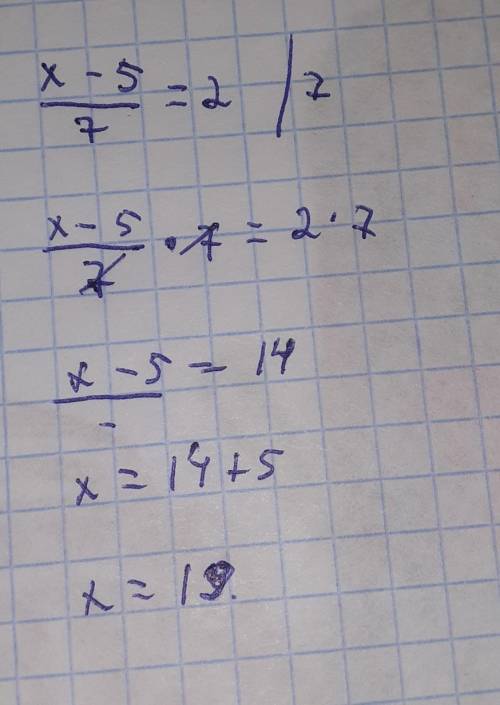 x - 5 / 7 = 2 | 7
x - 5 / 7 · 7 = 2 · 7
x - 5 = 14
x = 14 + 5
x = 19.